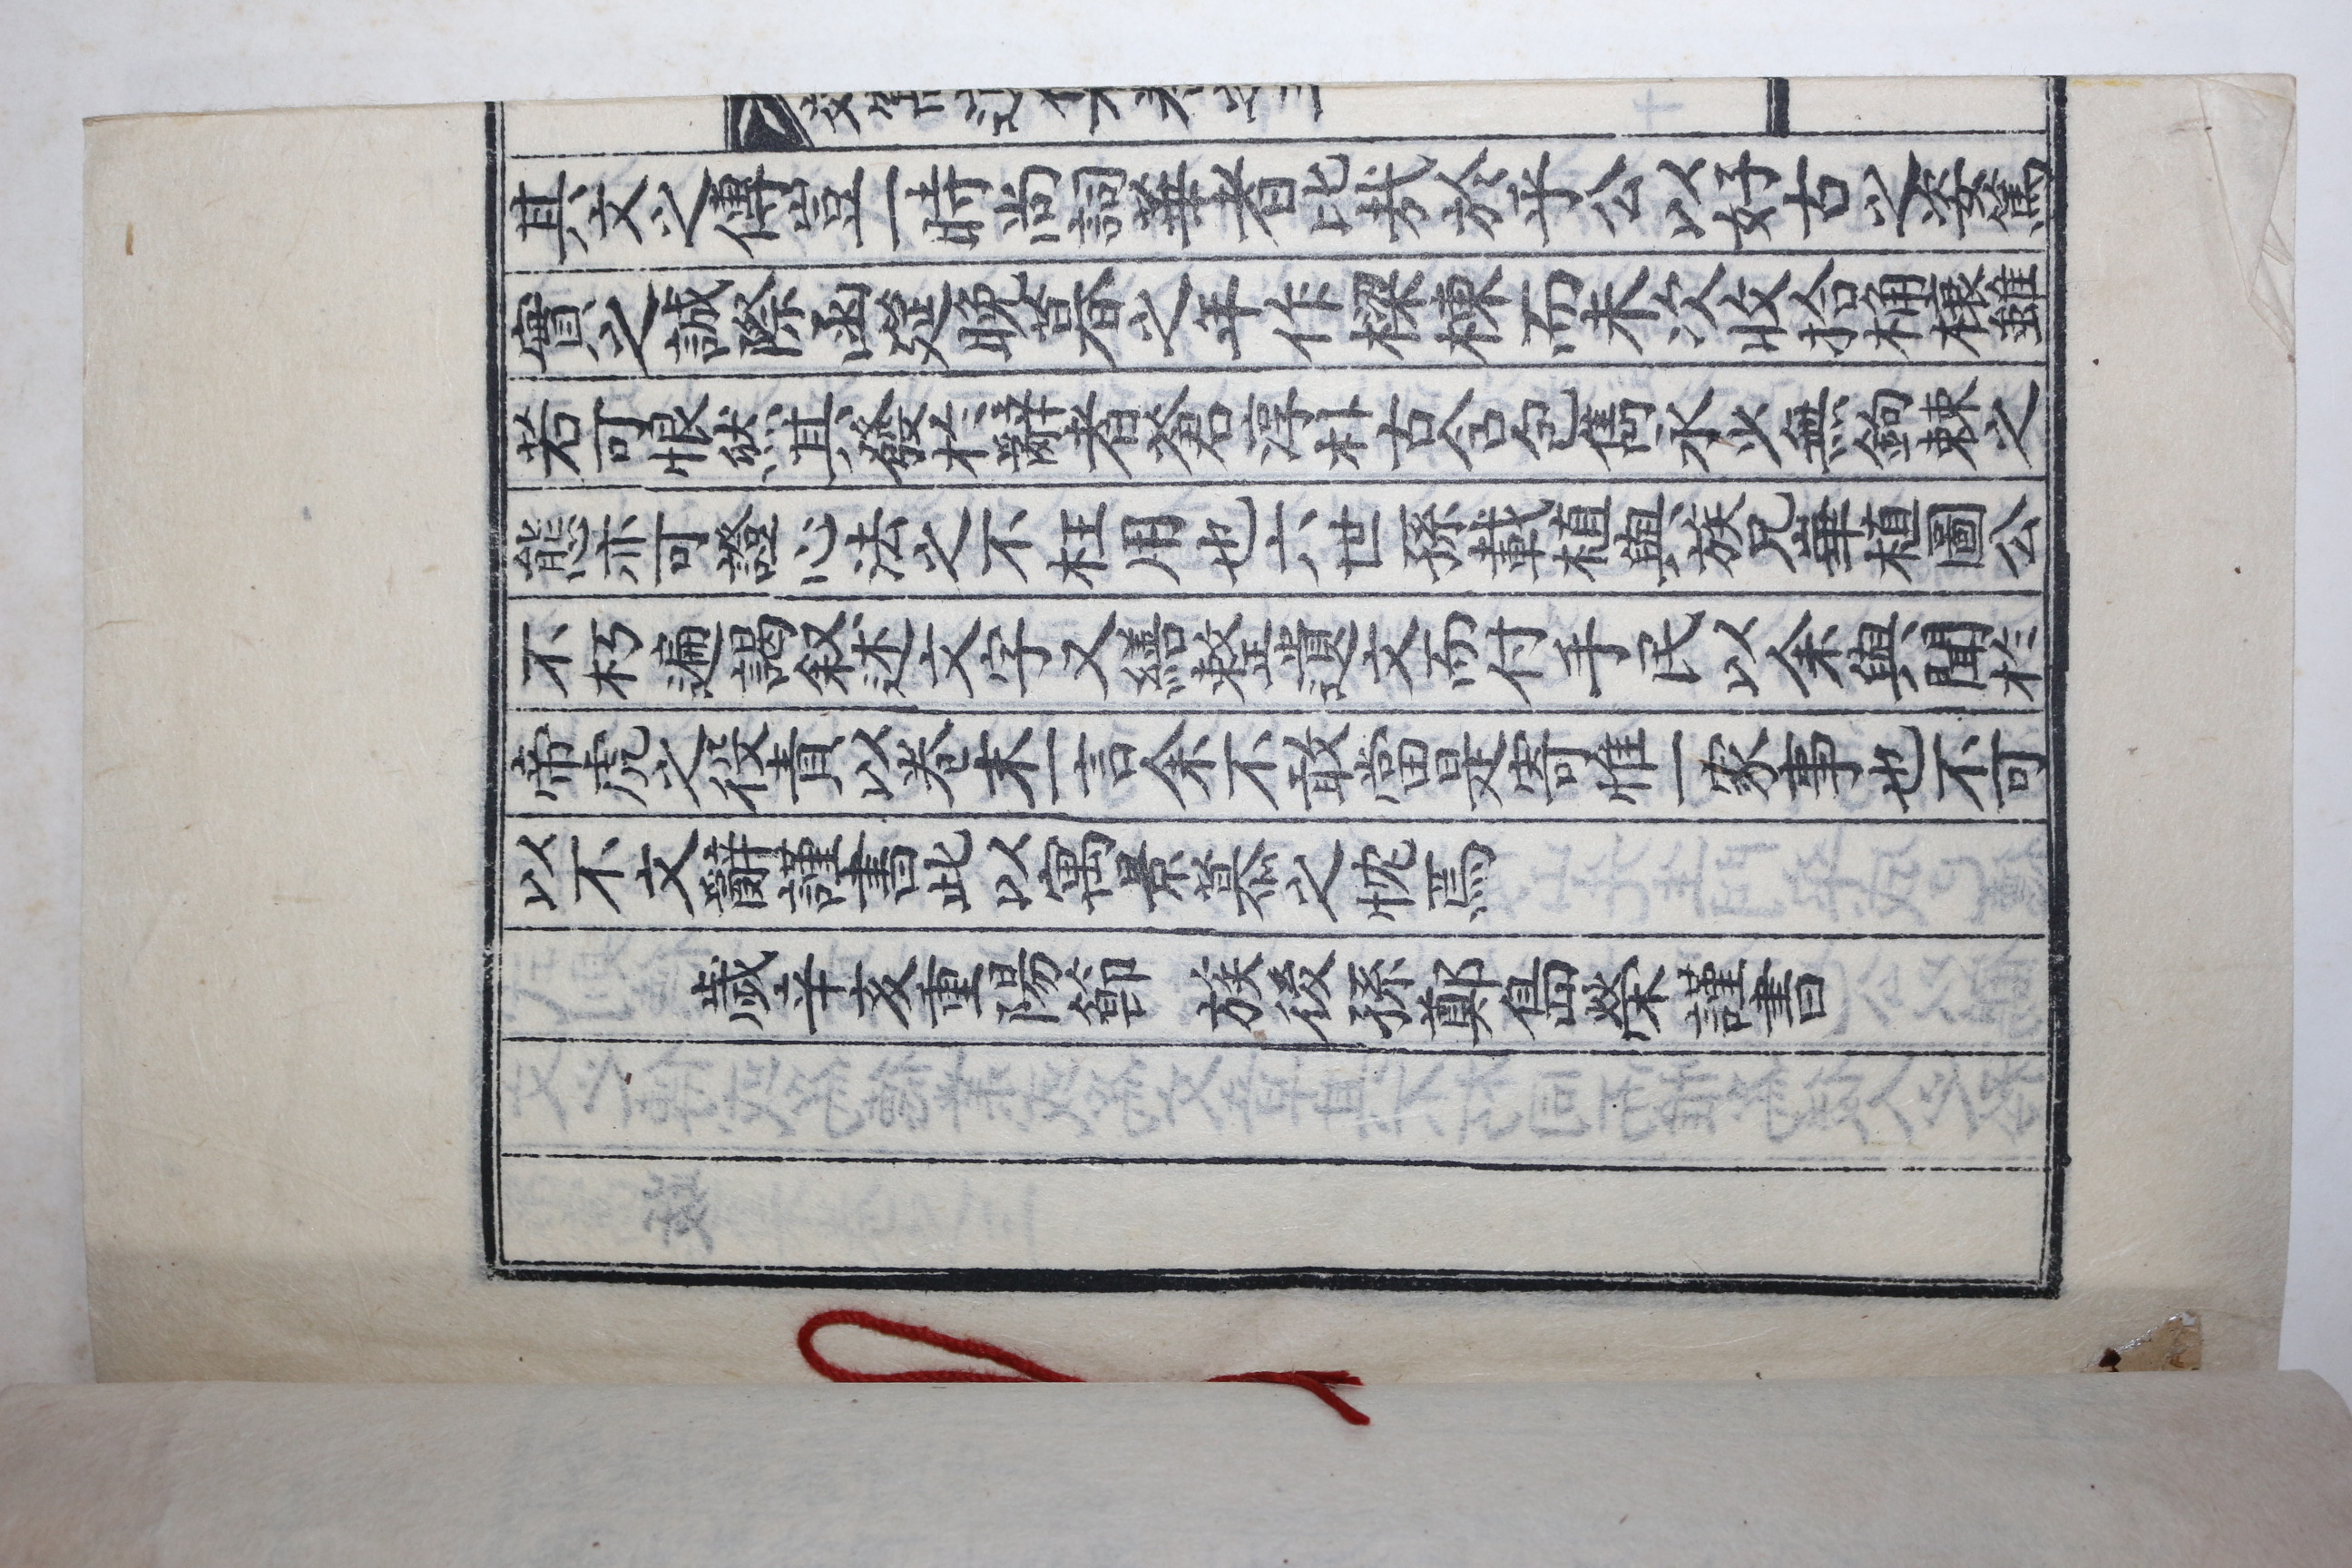 其文之傳豈一時尚詞華者比哉於乎公以好古之姿篤
實之誠際函筵晩暮之年作樑棟而未次收拾桷榱雖
若可恨然其發於辭者蒼淳朴古含包雋永少無鉤棘之
態亦可證心法之不枉用也六世孫載植與族兄崋植圖公
不朽遍謁叙述文字又繕整遺文而付手民以余與聞於
帝虎之役責以卷末一言余不敢當是寄惟一家事也不可
以不文辭謹書此以寓景慕之忱焉
歲辛亥重陽節 族後孫鄭㠀榮謹書